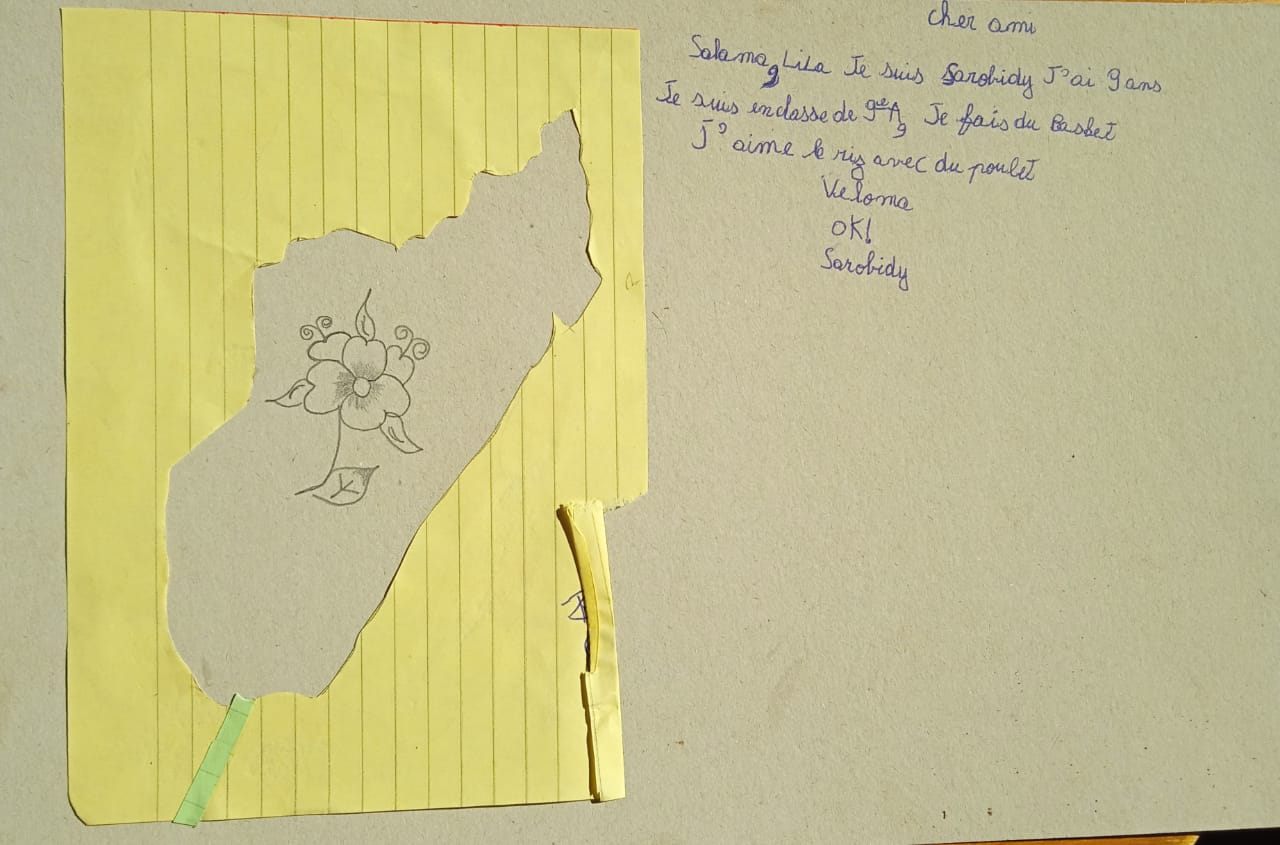 cher ami
Salama, Lila Je suis Sarobidy J'ai 9 ans
Je suis en classe de 9eA, Je fais du Basket
J'aime le riz avec du poulet
Veloma
OK!
Sarobidy